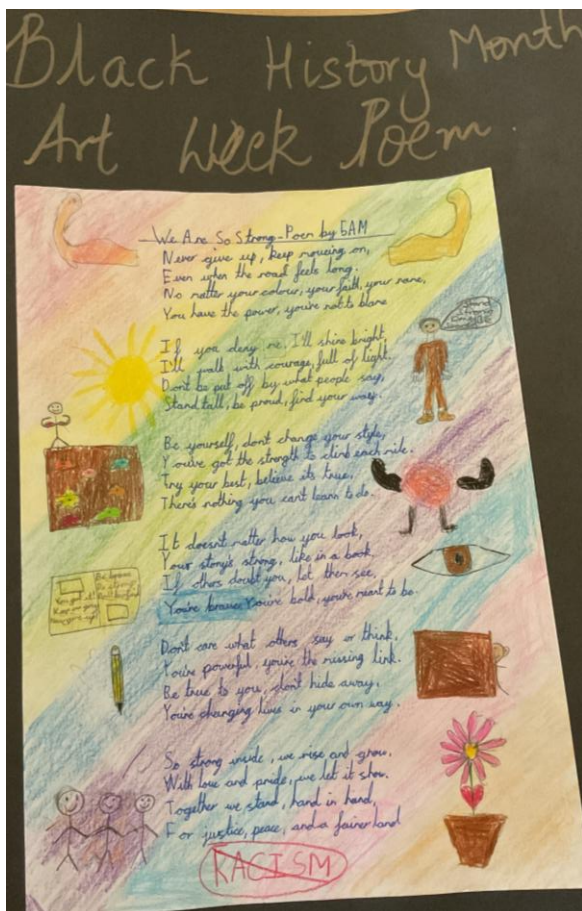 Black History Month
Art Week Poem.
We Are So Strong - Poem by 5AM
Never give up, keep moveing on,
Even when the road feels long.
No matter your colour, your faith, your name,
You have the power, you're not to blame
If you deny me, I'll shine bright,
I'll walk with courage, full of light.
Don't be put off by what people say,
Stand tall, be proud, find your way.
Be yourself, don't change your style,
Youve got the strength to climb each mile.
Try your best, believe its true,
There's nothing you can't learn to do.
It doesn't matter how you look,
Your story's strong, like in a book,
If others doubt you, let them see,
You're brave you're bold, you're meant to be.
Don't care what others say or think,
You're powerful, you're the missing link.
Be true to you, don't hide away,
You're changing lives in your own way.
So strong inside, we rise and grow,
With love and pride, we let it show.
Together we stand, hand in hand,
For justice, peace, and a fairer land
RACISM